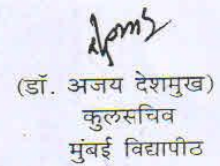 (डॉ. अजय देशमुख)
कुलसचिव
मुंबई विद्यापीठ